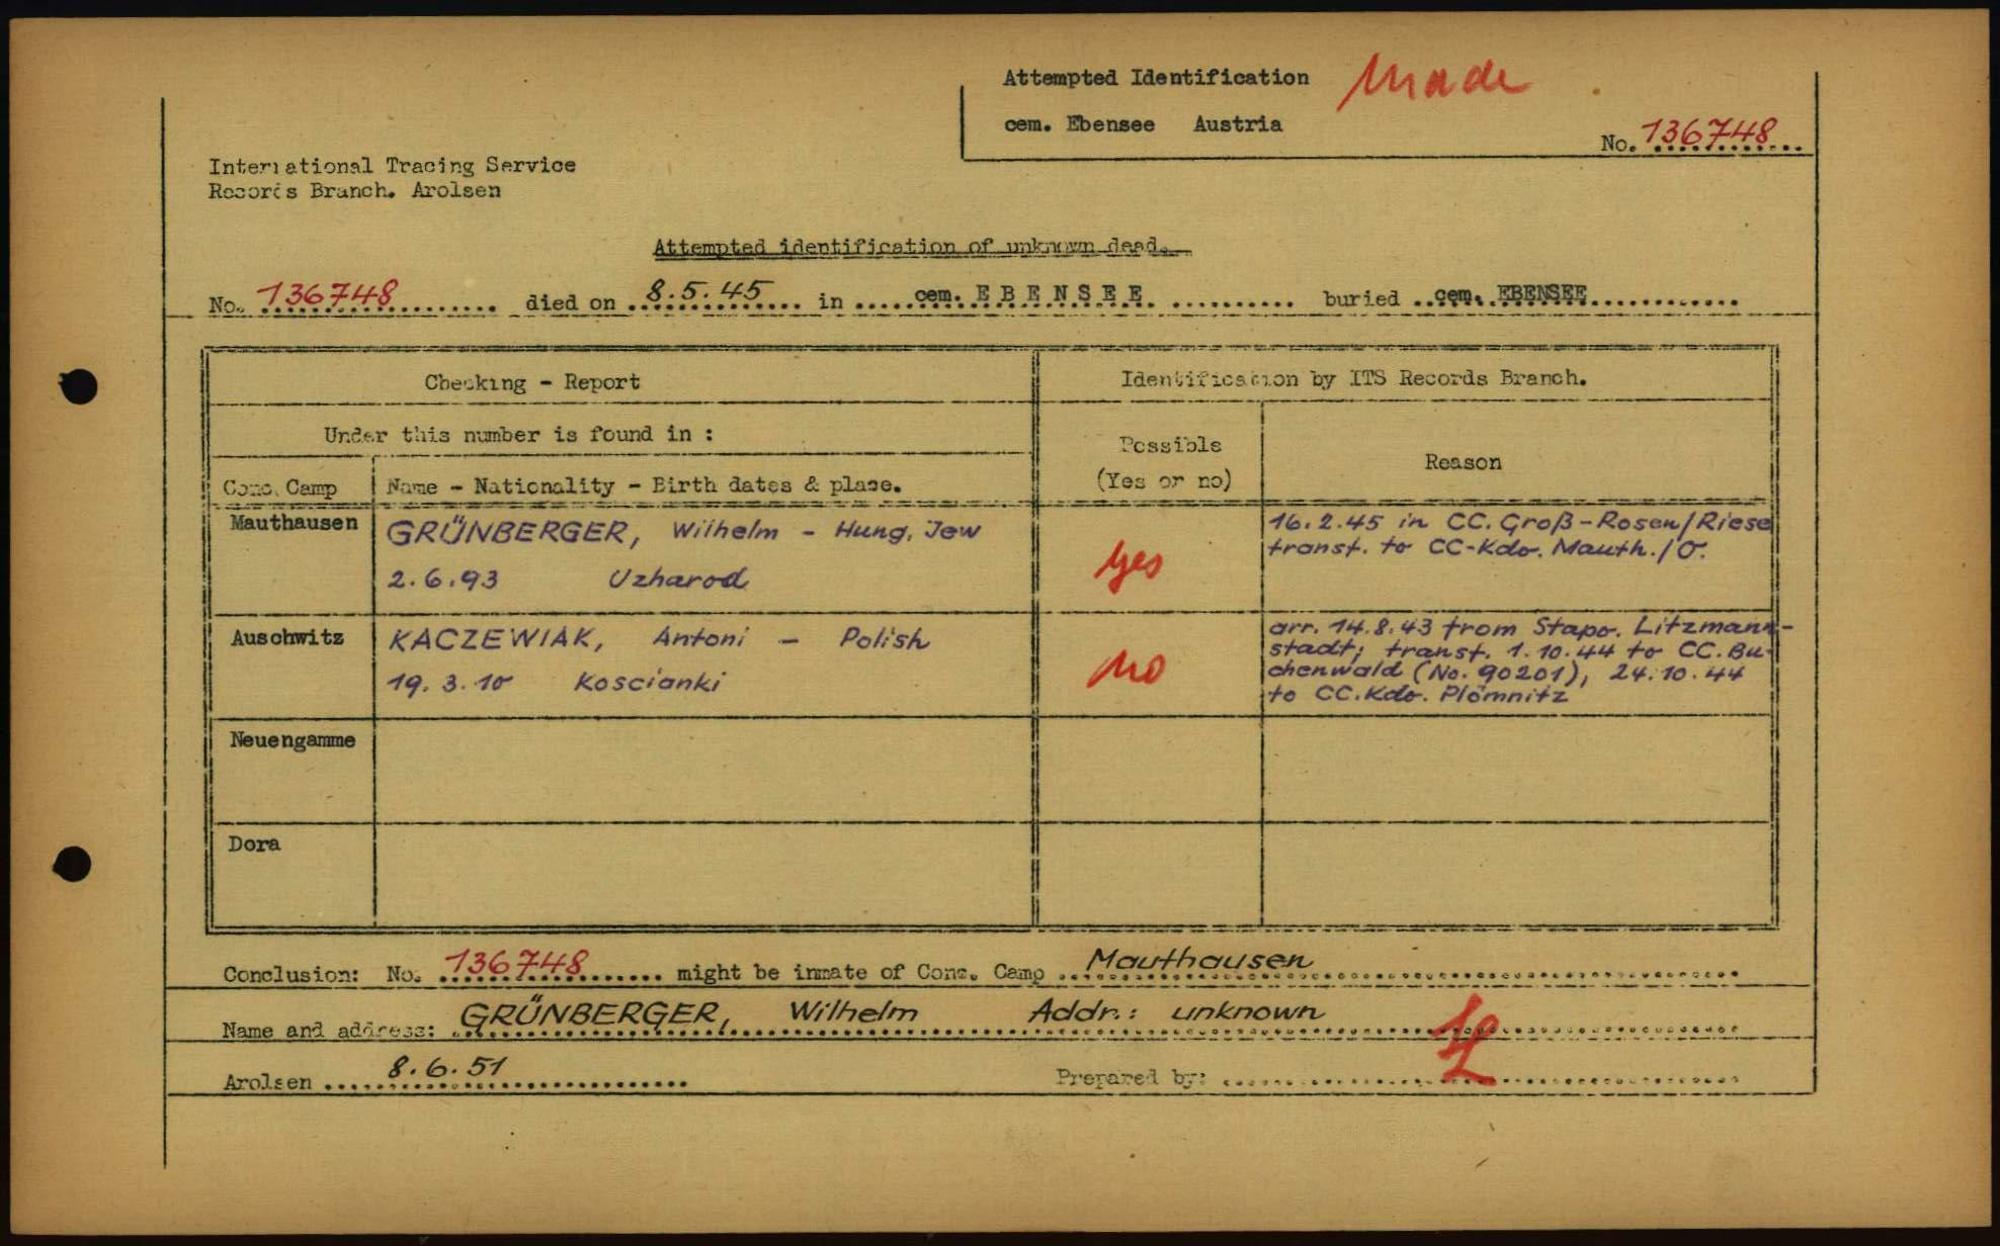 Attempted Identification made
cem. Ebensee Austria
No. 136748
International Tracing Service
Records Branch. Arolsen
Attempted identification of unknown dead.
No. 136748 died on 8.5.45 in cem. EBENSEE. buried cem. EBENSEE
Checking - Report
Identification by ITS Records Branch.
Under this number is found in :
Possible
(Yes or no)
Reason
Conc. Camp
Name - Nationality - Birth dates & place.
Mauthausen
GRÜNBERGER, Wilhelm - Hung. Jew
2.6.93 Uzharod
yes
16.2.45 in CC. Groß-Rosen/Riese
transf. to CC-Kdo. Mauth./O.
Auschwitz
KACZEWIAK, Antoni - Polish
19.3.10 Koscianki
no
arr. 14.8.43 from Stapo. Litzmann-
stadt; transf. 1.10.44 to CC. Bu-
chenwald (No. 90201), 24.10.44
to CC. Kdo. Plömnitz
Neuengamme
Dora
Conclusion: No. 136748 might be inmate of Conc. Camp Mauthausen
Name and address: GRÜNBERGER, Wilhelm Addr.: unknown
Arolsen 8.6.51
Prepared by: